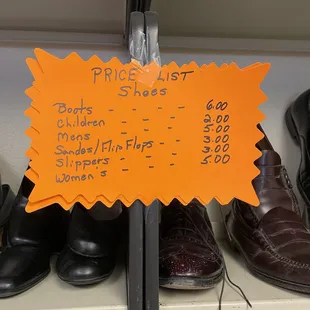 PRICE LIST
Shoes
Boots - - - 6.00
Children - - - 2.00
Mens - - - 5.00
Sandas/Flip Flops - - 3.00
Slippers - - - 3.00
Women's - - 5.00